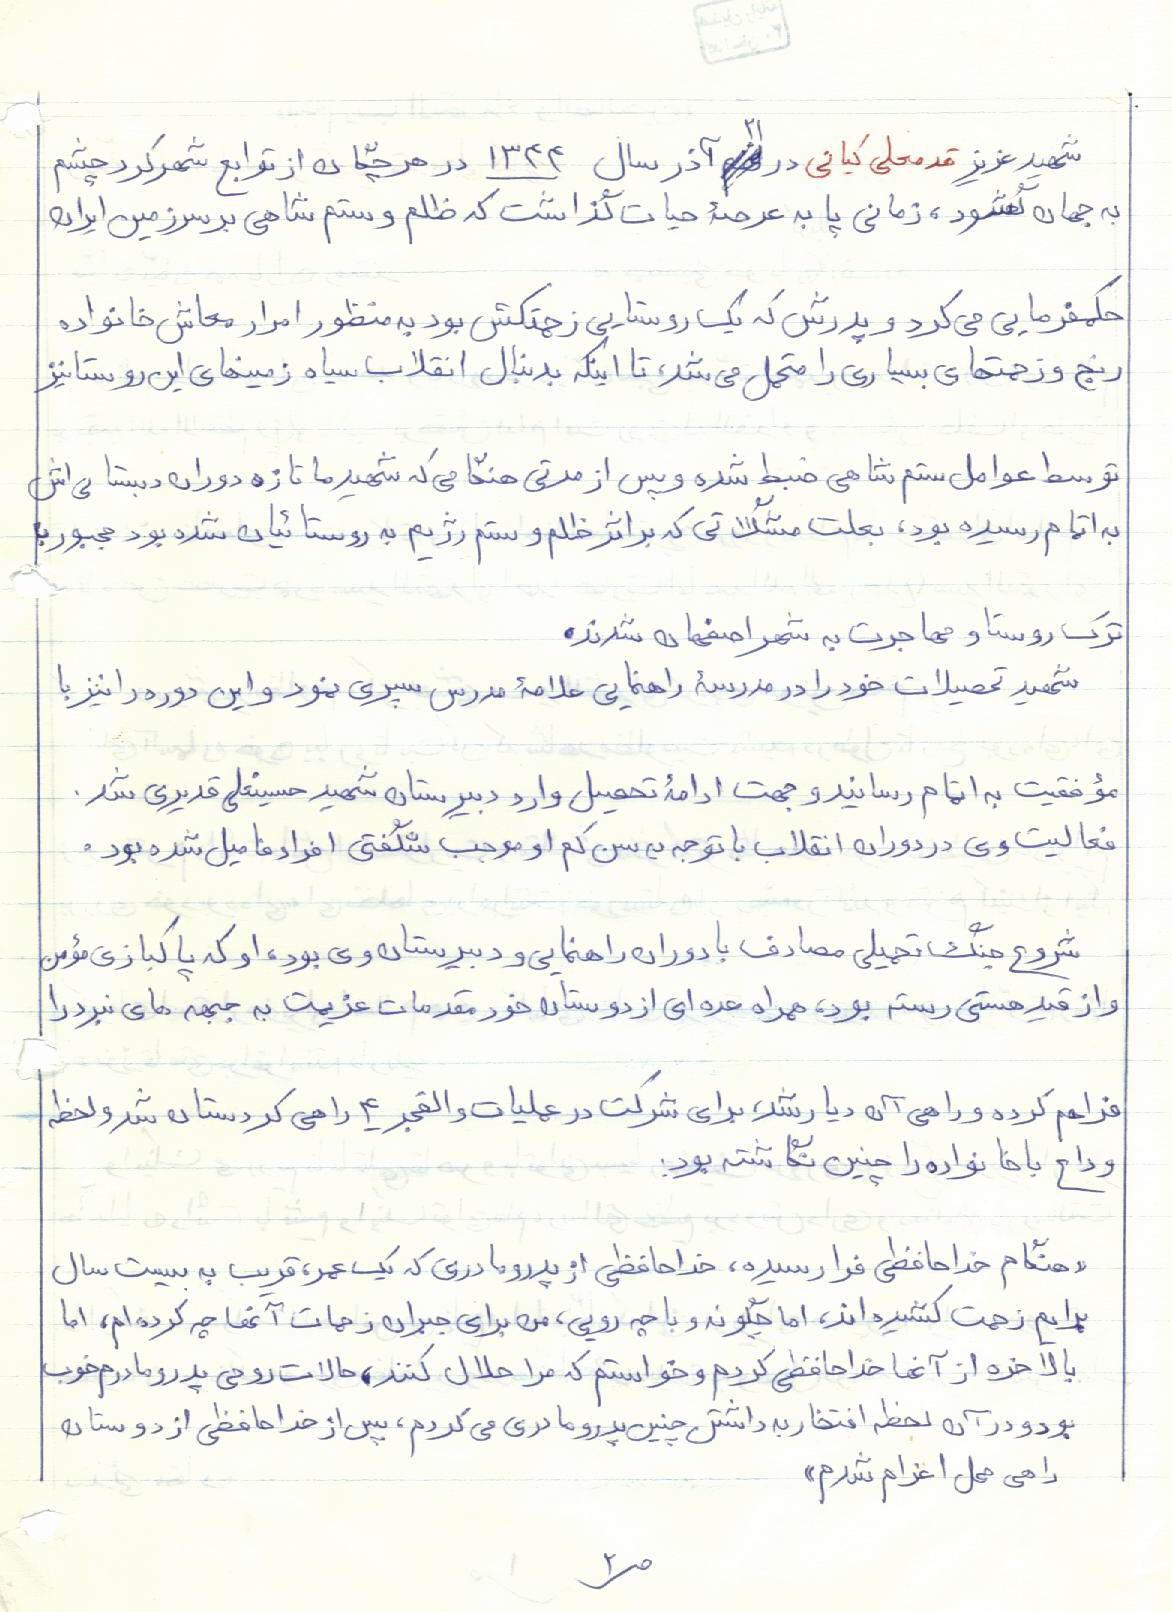 شهید عزیز قدمعلی کیانی در ۲۱ آذر سال ۱۳۴۴ در هرچگان از توابع شهرکرد چشم
به جهان گشود، زمانی پا به عرصهٔ حیات گذاشت که ظلم و ستم شاهی بر سرزمین ایران
حکمفرمایی می کرد و پدرش که یک روستایی زحمتکش بود به منظور امرار معاش خانواده
رنج و زحمتهای بسیاری را متحمل می شد، تا اینکه بدنبال انقلاب سیاه زمینهای این روستا نیز
توسط عوامل ستم شاهی ضبط شده و پس از مدتی هنگامی که شهید ما تازه دوران دبستانی اش
به اتمام رسیده بود، بعلت مشکلاتی که بر اثر ظلم و ستم رژیم به روستائیان شده بود مجبور به
ترک روستا و مهاجرت به شهر اصفهان شدند.
شهید تحصیلات خود را در مدرسهٔ راهنمایی علامهٔ مدرس سپری نمود و این دوره را نیز با
مؤفقیت به اتمام رسانید و جهت ادامهٔ تحصیل وارد دبیرستان شهید حسینعلی قدیری شد.
فعالیت وی در دوران انقلاب با توجه به سن کم او موجب شگفتی افراد فامیل شده بود.
شروع جنگ تحمیلی مصادف با دوران راهنمایی و دبیرستان وی بود، او که پاکبازی مؤمن
و از قید هستی رسته بود، همراه عده ای از دوستان خود مقدمات عزیمت به جبهه های نبرد را
فراهم کرده و راهی آن دیار شد، برای شرکت در عملیات والفجر ۴ راهی کردستان شد و لحظه
وداع با خانواده را چنین نگاشته بود.
«هنگام خداحافظی فرا رسیده، خداحافظی از پدر و مادری که یک عمر، قریب به بیست سال
برایم زحمت کشیده اند، اما چگونه و با چه رویی، من برای جبران زحمات آنها چه کرده ام، اما
بالاخره از آنها خداحافظی کردم و خواستم که مرا حلال کنند، حالات روحی پدر و مادرم خوب
بود و در آن لحظه افتخار به داشتن چنین پدر و مادری می کردم، پس از خداحافظی از دوستان
راهی محل اعزام شدم»
ص ۲